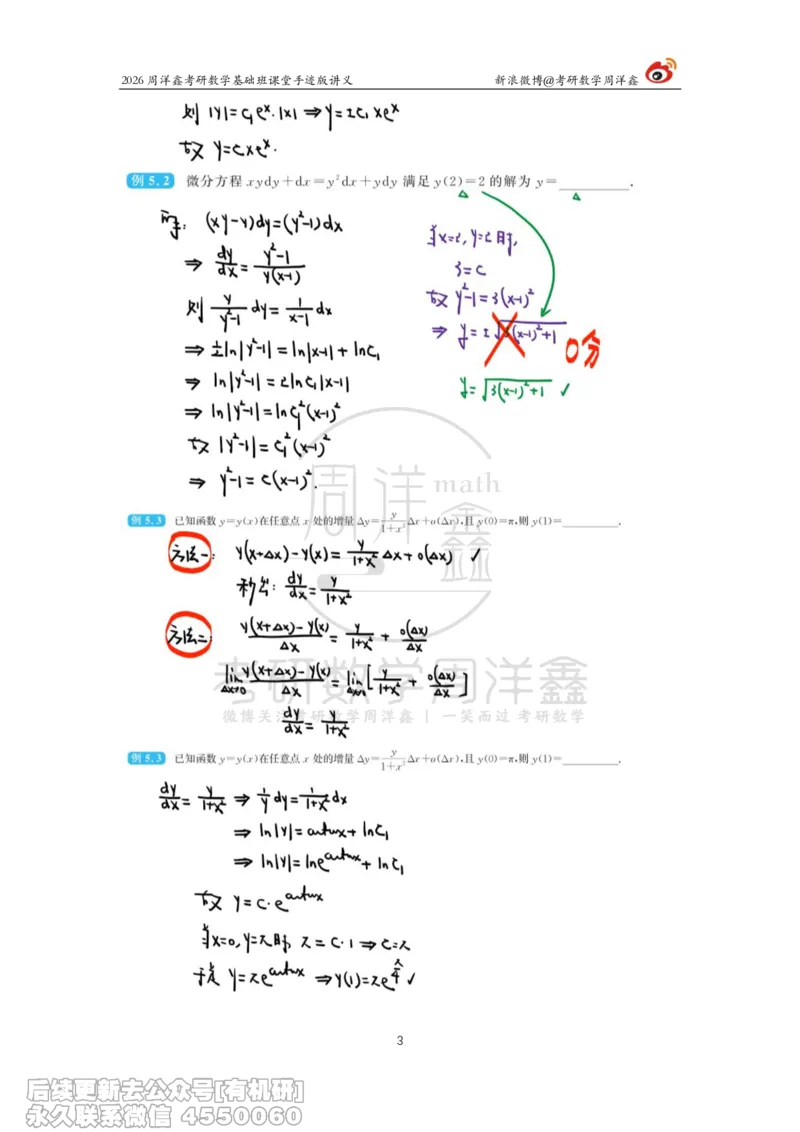 2026 周洋鑫考研数学基础班课堂手迹版讲义 新浪微博@考研数学周洋鑫
则 |y|=C₁eˣ·|x| ⇒ y=±C₁xeˣ
故 y=Cxeˣ.
例 5.2 微分方程 xydy+dx=y²dx+ydy 满足 y(2)=2 的解为 y=________.
解: (xy-y)dy=(y²-1)dx
⇒ dy/dx = (y²-1)/(y(x-1))
则 y/(y²-1) dy = 1/(x-1) dx
⇒ ½ln|y²-1|=ln|x-1|+lnC₁
⇒ ln|y²-1|=2lnC₁|x-1|
⇒ ln|y²-1|=lnC₁²(x-1)²
故 |y²-1|=C₁²(x-1)²
⇒ y²-1=C(x-1)².
当x=2, y=2时,
3=C
故 y²-1=3(x-1)²
⇒ y=±√(3(x-1)²+1) 0分
y=√(3(x-1)²+1) ✓
周洋鑫 math
例 5.3 已知函数 y=y(x)在任意点 x 处的增量 Δy=y/(1+x²) Δx+o(Δx),且 y(0)=π,则 y(1)=________.
方法一: y(x+Δx)-y(x)=y/(1+x²) Δx+o(Δx) ✓
dy/dx=y/(1+x²)
方法二: (y(x+Δx)-y(x))/Δx=y/(1+x²)+o(Δx)/Δx
lim Δx→0 (y(x+Δx)-y(x))/Δx=lim Δx→0 [y/(1+x²)+o(Δx)/Δx]
dy/dx=y/(1+x²)
考研数学周洋鑫
微博关注考研数学周洋鑫 | 一笑而过 考研数学
例 5.3 已知函数 y=y(x)在任意点 x 处的增量 Δy=y/(1+x²) Δx+o(Δx),且 y(0)=π,则 y(1)=________.
dy/dx=y/(1+x²) ⇒ 1/y dy=1/(1+x²) dx
⇒ ln|y|=arctanx+lnC₁
⇒ ln|y|=lne^arctanx+lnC₁
故 y=C·e^arctanx
当x=0, y=π时, π=C·1 ⇒ C=π
于是 y=πe^arctanx ⇒ y(1)=πe^(π/4) ✓
3
后续更新去公众号[有机研]
永久联系微信 4550060